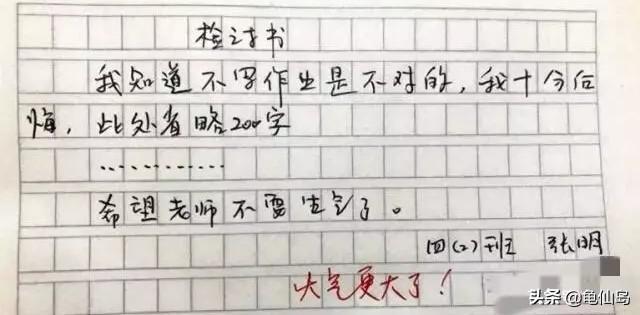 检讨书
我知道不写作业是不对的，我十分后
悔，此处省略200字
…………
希望老师不要生气了。
四(2)班 张明
火气更大了！
头条@龟仙岛